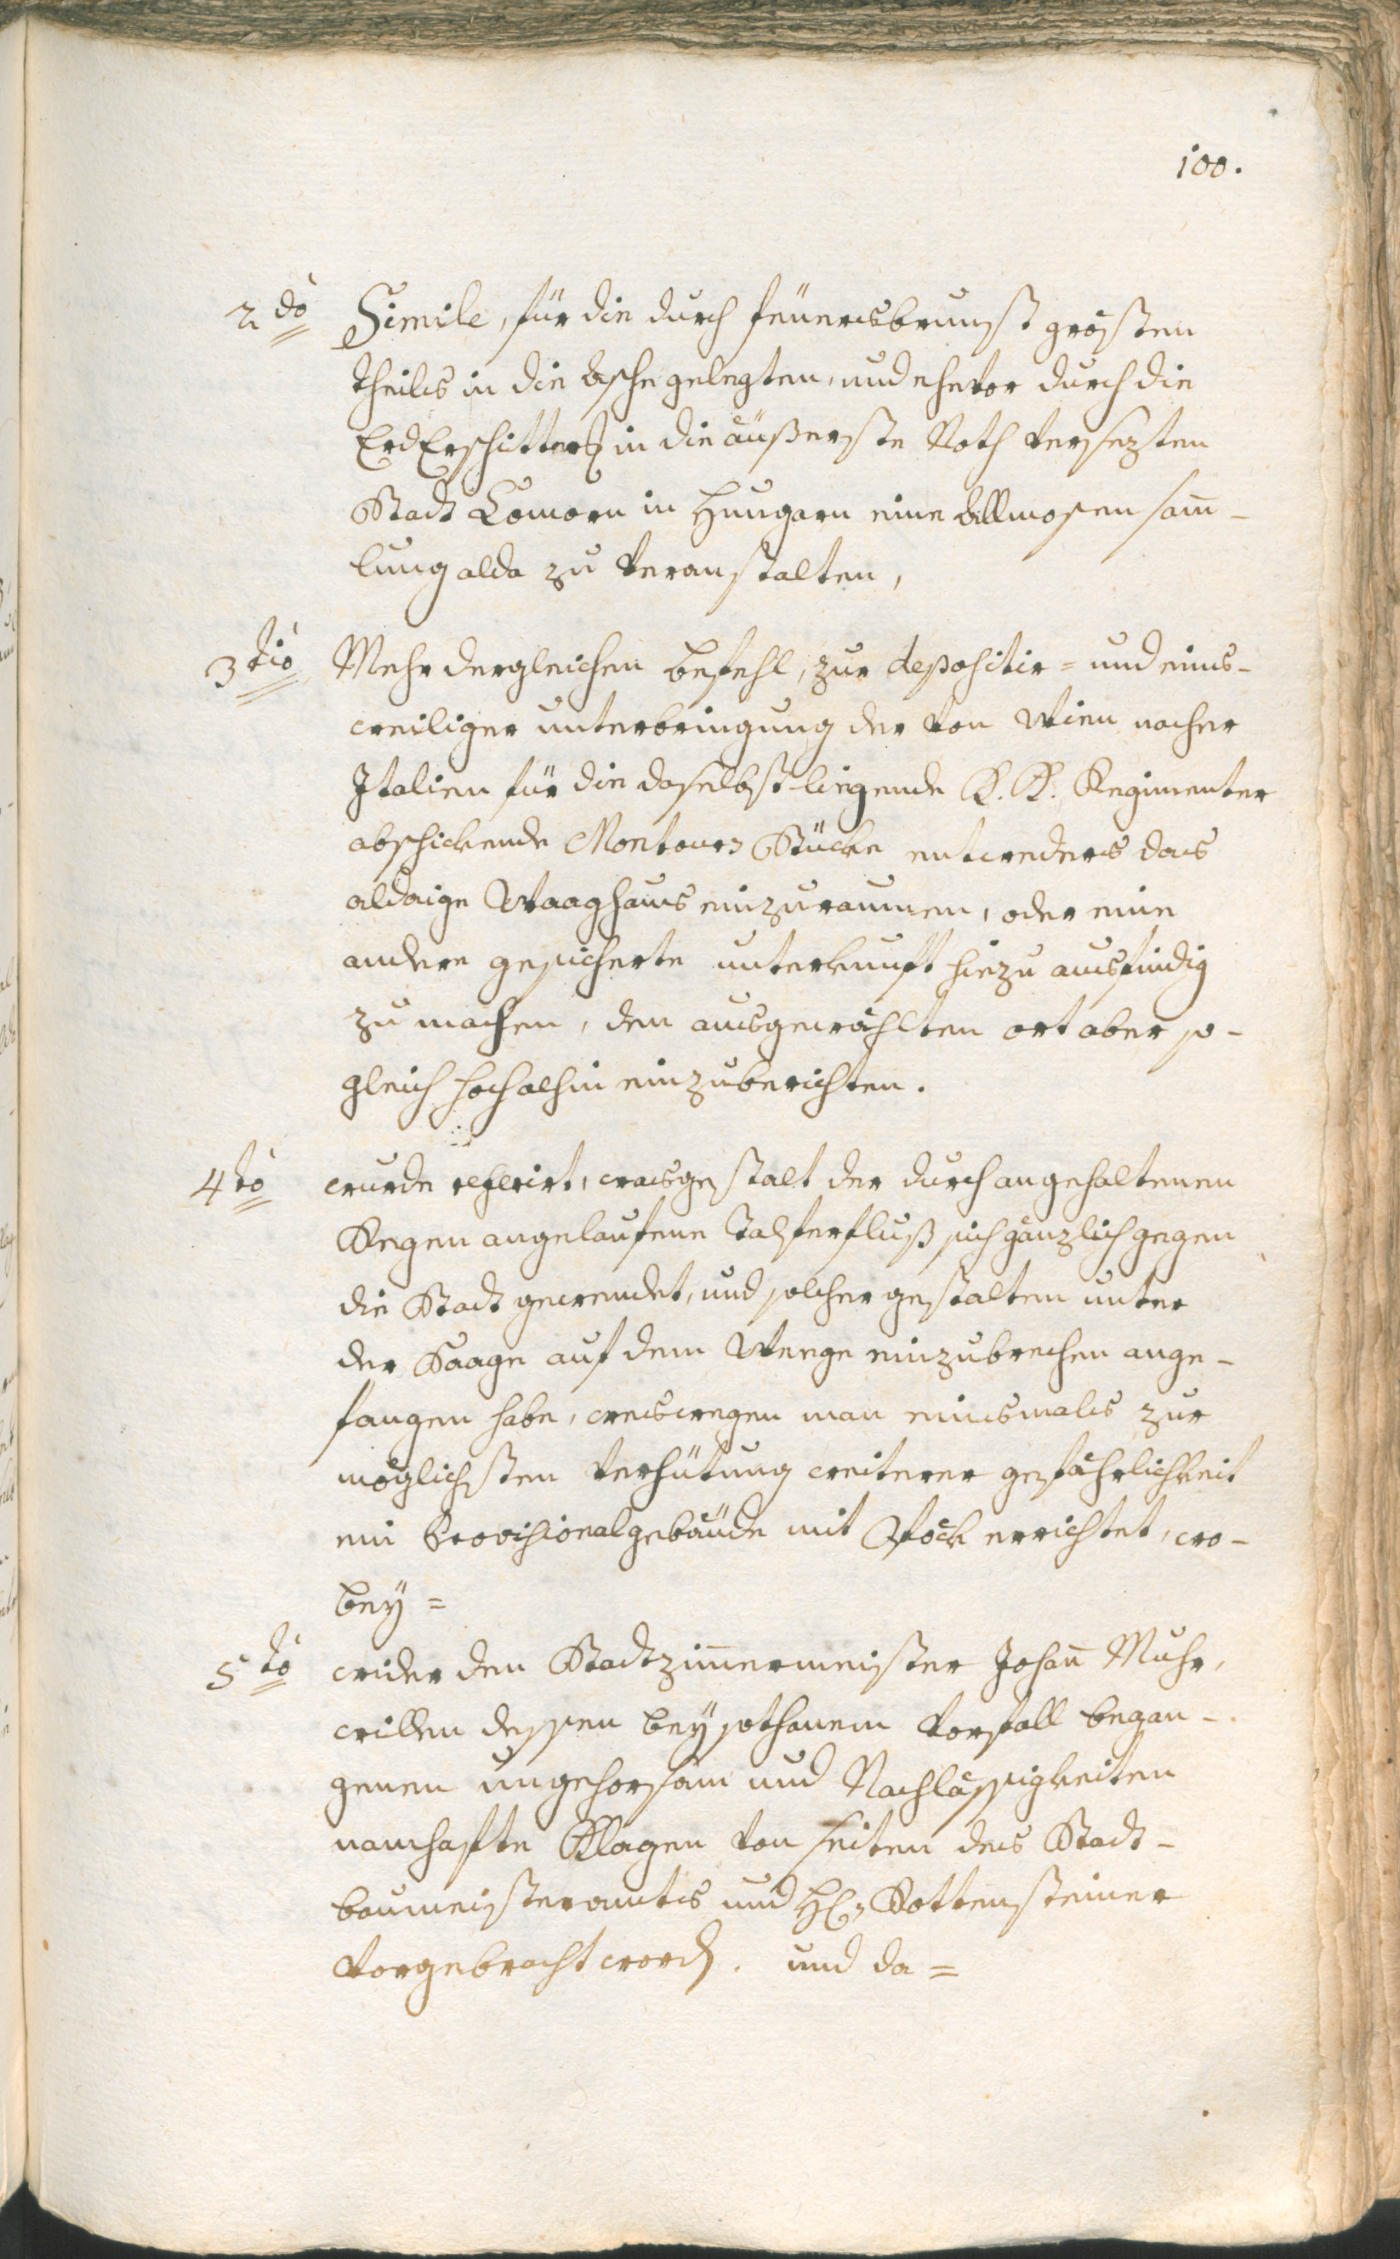 100.
2do Simile, für die durch feüersbrunst grösten
theils in die Asche gelegten, und ehevor durch die
ErdErschitter in die äußerste Noth versezten
Stadt Comorn in Hungarn eine Allmosen sam̄-
lung alda zu veranstalten,
3tio Mehr dergleichen befehl, zur depositir= und eins-
weiliger unterbringung der von Wien nacher
Italien für die daselbst liegende K. K. Regimenter
abschickende Montours Stücke entweders das
aldaige Waaghaus einzuraumen, oder eine
andere gesicherte unterkunft hiezu ausfindig
zu machen, den ausgewählten ort aber so-
gleich hochalhin einzuberichten.
4to wurde referirt, wasgestalt der durch angehaltenen
Regen angelaufene Talferfluß sich gänzlich gegen
die Stadt gewendet, und solcher gestalten unter
der Saage auf dem Weege einzubrechen ange-
fangen habe, weswegen man einsmals zur
möglichsten verhütung weiterer gefährlichkeit
ein Provisionalgebäude mit Pöck errichtet, wo-
bey =
5to wider den Stadtzim̄ermeister Johan̄ Muhr,
willen dessen bey sothanem vorfall began-
genen ungehorsam und Nachlässigkeiten
namhafte Klagen von seiten des Stadt-
baumeisteramts und H: Rottensteiner
vorgebracht word. und da=